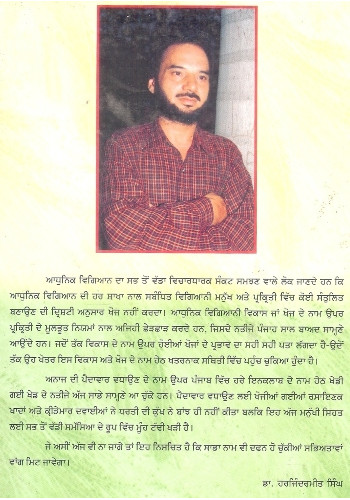 ਆਧੁਨਿਕ ਵਿਗਿਆਨ ਦਾ ਸਭ ਤੋਂ ਵੱਡਾ ਵਿਚਾਰਧਾਰਕ ਸੰਕਟ ਸਮਝਣ ਵਾਲੇ ਲੋਕ ਜਾਣਦੇ ਹਨ ਕਿ
ਆਧੁਨਿਕ ਵਿਗਿਆਨ ਦੀ ਹਰ ਸ਼ਾਖਾ ਨਾਲ ਸਬੰਧਿਤ ਵਿਗਿਆਨੀ ਮਨੁੱਖ ਅਤੇ ਪ੍ਰਕ੍ਰਿਤੀ ਵਿੱਚ ਕੋਈ ਸੰਤੁਲਿਤ
ਬਣਾਉਣ ਦੀ ਦ੍ਰਿਸ਼ਟੀ ਅਨੁਸਾਰ ਖੋਜ ਨਹੀਂ ਕਰਦਾ। ਆਧੁਨਿਕ ਵਿਗਿਆਨੀ ਵਿਕਾਸ ਜਾਂ ਖੋਜ ਦੇ ਨਾਮ ਉਪਰ
ਪ੍ਰਕ੍ਰਿਤੀ ਦੇ ਮੂਲਭੂਤ ਨਿਯਮਾਂ ਨਾਲ ਅਜਿਹੀ ਛੇੜਛਾੜ ਕਰਦੇ ਹਨ, ਜਿਸਦੇ ਨਤੀਜੇ ਪੰਜਾਹ ਸਾਲ ਬਾਅਦ ਸਾਮ੍ਹਣੇ
ਆਉਂਦੇ ਹਨ। ਜਦੋਂ ਤੱਕ ਵਿਕਾਸ ਦੇ ਨਾਮ ਉਪਰ ਹੁੰਦੀਆਂ ਖੋਜਾਂ ਦੇ ਪ੍ਰਭਾਵ ਦਾ ਸਹੀ ਸਹੀ ਪਤਾ ਲੱਗਦਾ ਹੈ-ਉਦੋਂ
ਤੱਕ ਉਹ ਖੇਤਰ ਇਸ ਵਿਕਾਸ ਅਤੇ ਖੋਜ ਦੇ ਨਾਮ ਹੇਠ ਖਤਰਨਾਕ ਸਥਿਤੀ ਵਿੱਚ ਪਹੁੰਚ ਚੁਕਿਆ ਹੁੰਦਾ ਹੈ।
ਅਨਾਜ ਦੀ ਪੈਦਾਵਾਰ ਵਧਾਉਣ ਦੇ ਨਾਮ ਉਪਰ ਪੰਜਾਬ ਵਿੱਚ ਹਰੇ ਇਨਕਲਾਬ ਦੇ ਨਾਮ ਹੇਠ ਖੇਡੀ
ਗਈ ਖੇਡ ਦੇ ਨਤੀਜੇ ਅੱਜ ਸਾਡੇ ਸਾਮ੍ਹਣੇ ਆ ਚੁੱਕੇ ਹਨ। ਪੈਦਾਵਾਰ ਵਧਾਉਣ ਲਈ ਖੋਜੀਆਂ ਗਈਆਂ ਰਸਾਇਣਕ
ਖਾਦਾਂ ਅਤੇ ਕ੍ਰਿਤੇਮਾਰ ਦਵਾਈਆਂ ਨੇ ਧਰਤੀ ਦੀ ਕੁੱਖ ਨੂੰ ਬਾਂਝ ਹੀ ਨਹੀਂ ਕੀਤਾ ਬਲਕਿ ਇਹ ਅੱਜ ਮਨੁੱਖੀ ਸਿਹਤ
ਲਈ ਸਭ ਤੋਂ ਵੱਡੀ ਸਮੱਸਿਆ ਦੇ ਰੂਪ ਵਿੱਚ ਮੂੰਹ ਟੱਢੀ ਖੜੀ ਹੈ।
ਜੇ ਅਸੀਂ ਅੱਜ ਵੀ ਨਾ ਜਾਗੇ ਤਾਂ ਇਹ ਨਿਸਚਿਤ ਹੈ ਕਿ ਸਾਡਾ ਨਾਮ ਵੀ ਦਫਨ ਹੋ ਚੁੱਕੀਆਂ ਸਭਿਅਤਾਵਾਂ
ਵਾਂਗ ਮਿਟ ਜਾਵੇਗਾ।
ਡਾ. ਹਰਜਿੰਦਰਮੀਤ ਸਿੰਘ